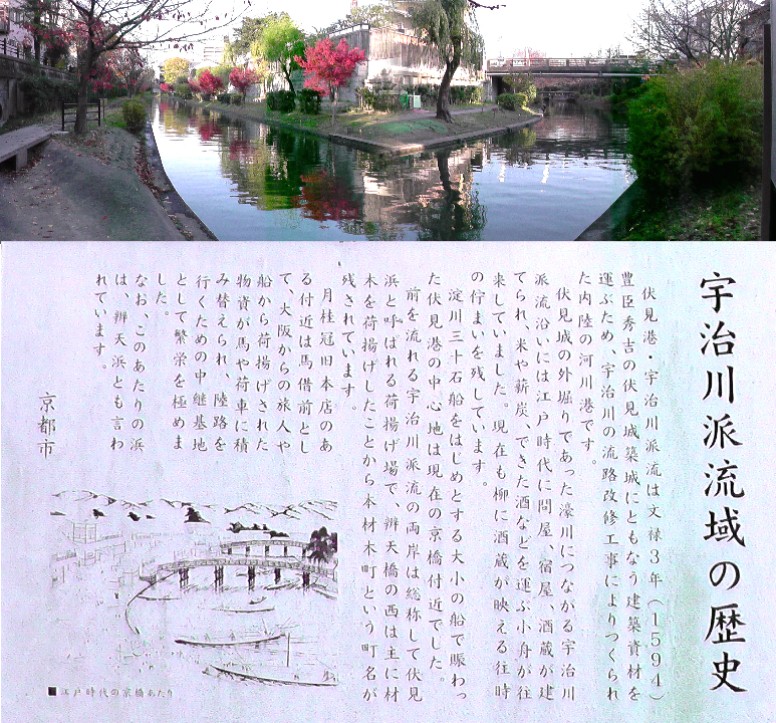 宇治川派流域の歴史
伏見港・宇治川派流は文禄3年(1594)
豊臣秀吉の伏見城築城にともなう建築資材を
運ぶため、宇治川の流路改修工事によりつくられ
た内陸の河川港です。
伏見城の外堀りであった濠川につながる宇治川
派流沿いには江戸時代に問屋、宿屋、酒蔵が建
てられ、米や薪炭、できた酒などを運ぶ小舟が往
来していました。現在も柳に酒蔵が映える往時
の佇まいを残しています。
淀川三十石船をはじめとする大小の船で賑わっ
た伏見港の中心地は現在の京橋付近でした。
前を流れる宇治川派流の両岸は総称して伏見
浜と呼ばれる荷揚げ場で、辨天橋の西は主に材
木を荷揚げしたことから本材木町という町名が
残されています。
月桂冠旧本店のあ
る付近は馬借前とし
て、大阪からの旅人や
船から荷揚げされた
物資が馬や荷車に積
み替えられ、陸路を
行くための中継基地
として繁栄を極めま
した。
なお、このあたりの浜
は、辨天浜とも言わ
れています。
京都市
■江戸時代の京橋あたり